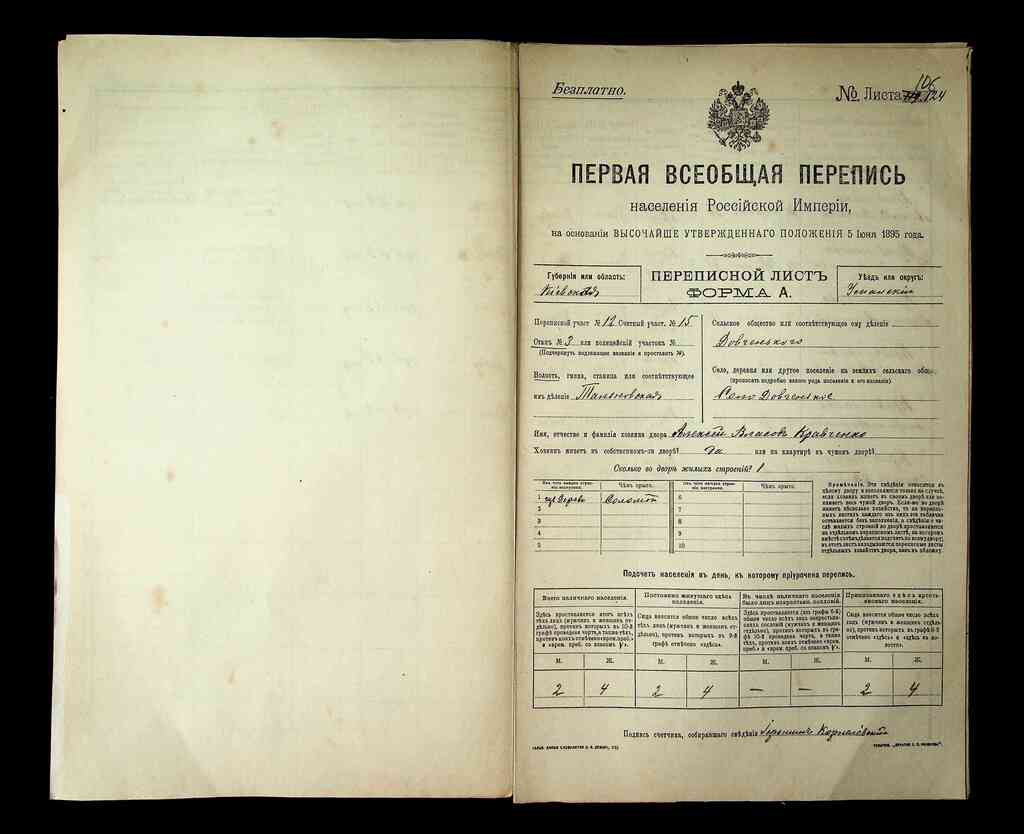 Безплатно.
№ Листа 124
106
ПЕРВАЯ ВСЕОБЩАЯ ПЕРЕПИСЬ
населенія Россійской Имперіи,
на основаніи ВЫСОЧАЙШЕ УТВЕРЖДЕННАГО ПОЛОЖЕНІЯ 5 Іюня 1895 года.
Губернія или область:
Кіевская
ПЕРЕПИСНОЙ ЛИСТЪ
ФОРМА А.
Уѣздъ или округъ:
Уманскій
Переписной участ. № 12 Счетный участ. № 15
Станъ № 3 или полицейскій участокъ №
(Подчеркнуть подлежащее названіе и проставить №).
Волость, гмина, станица или соотвѣтствующее
имъ дѣленіе Тальновская
Сельское общество или соотвѣтствующее ему дѣленіе
Довгенького
Село, деревня или другое поселеніе на земляхъ сельскаго общ.
(прописать подробно какого рода поселеніе и его названіе)
Село Довгенькое
Имя, отчество и фамилія хозяина двора Алексѣй Власовъ Кравченко
Хозяинъ живетъ въ собственномъ-ли дворѣ? да или на квартирѣ въ чужомъ дворѣ?
Сколько во дворѣ жилыхъ строеній? 1
Изъ чего жилыя строенія построены.
Чѣмъ крыто.
Изъ чего жилыя строенія построены.
Чѣмъ крыто.
1 Дерева Соломой 6
2 7
3 8
4 9
5 10
Примѣчаніе. Эти свѣдѣнія относятся къ
цѣлому двору и заполняются только въ случаѣ,
если хозяинъ живетъ въ своемъ дворѣ или за-
нимаетъ весь чужой дворъ. Если-же во дворѣ
живетъ нѣсколько хозяйствъ, то на перепис-
ныхъ листахъ каждаго изъ нихъ эта табличка
оставляется безъ заполненія, а свѣдѣнія о чи-
слѣ жилыхъ строеній во дворѣ проставляются
на отдѣльномъ переписномъ листѣ, на которомъ
вмѣстѣ съ тѣмъ дѣлается подсчетъ по всему двору;
въ этотъ листъ вкладываются переписные листы
отдѣльныхъ хозяйствъ двора, какъ въ обложку.
Подсчетъ населенія въ день, къ которому пріурочена перепись.
Всего наличнаго населенія.
Постоянно живущаго здѣсь
населенія.
Въ числѣ наличнаго населенія
было лицъ некрестьянск. сословій.
Приписаннаго здѣсь кресть-
янскаго населенія.
Здѣсь проставляется итогъ всѣхъ
тѣхъ лицъ (мужчинъ и женщинъ от-
дѣльно), противъ которыхъ въ 10-й
графѣ проведена черта, а также тѣхъ,
противъ коихъ отмѣчено «врем. преб.»
и «врем. преб. со знакомъ V».
Сюда вносится общее число всѣхъ
тѣхъ лицъ (мужчинъ и женщинъ от-
дѣльно), противъ которыхъ въ 9-й
графѣ отмѣчено «здѣсь».
Здѣсь проставляется (изъ графы 6-й)
общее число лицъ некрестьян-
скихъ сословій (мужчинъ и женщинъ
отдѣльно), противъ которыхъ въ гра-
фѣ 10-й проведена черта, а также
тѣхъ, противъ коихъ отмѣчено «врем.
преб.» и «врем. преб. со знакомъ V».
Сюда вносится общее число всѣхъ
лицъ (мужчинъ и женщинъ отдѣль-
но), противъ которыхъ въ графѣ 8-й
отмѣчено «здѣсь» и «здѣсь въ во-
лости».
М. Ж. М. Ж. М. Ж. М. Ж.
2 4 2 4 — — 2 4
Подпись счетчика, собиравшаго свѣдѣнія Корнасевскій